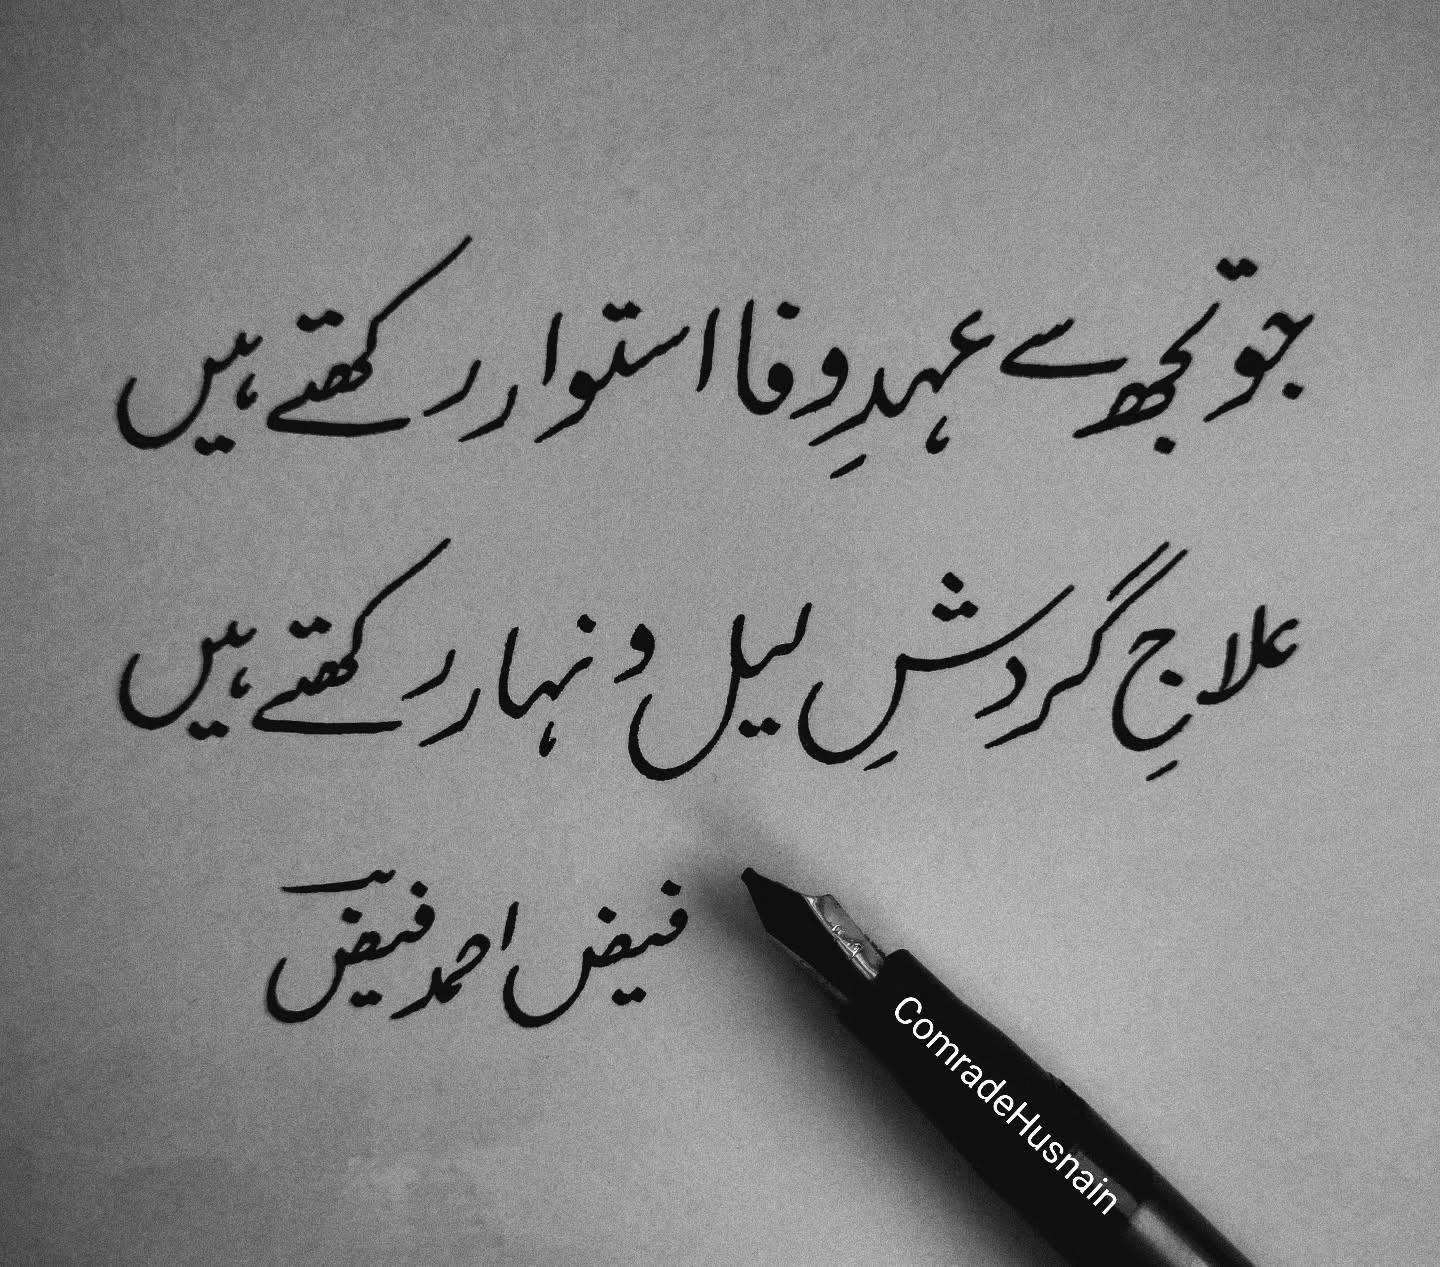 جو تجھ سے عہدِ وفا استوار رکھتے ہیں
علاجِ گردشِ لیل و نہار رکھتے ہیں
فیض احمد فیضؔ
ComradeHusnain